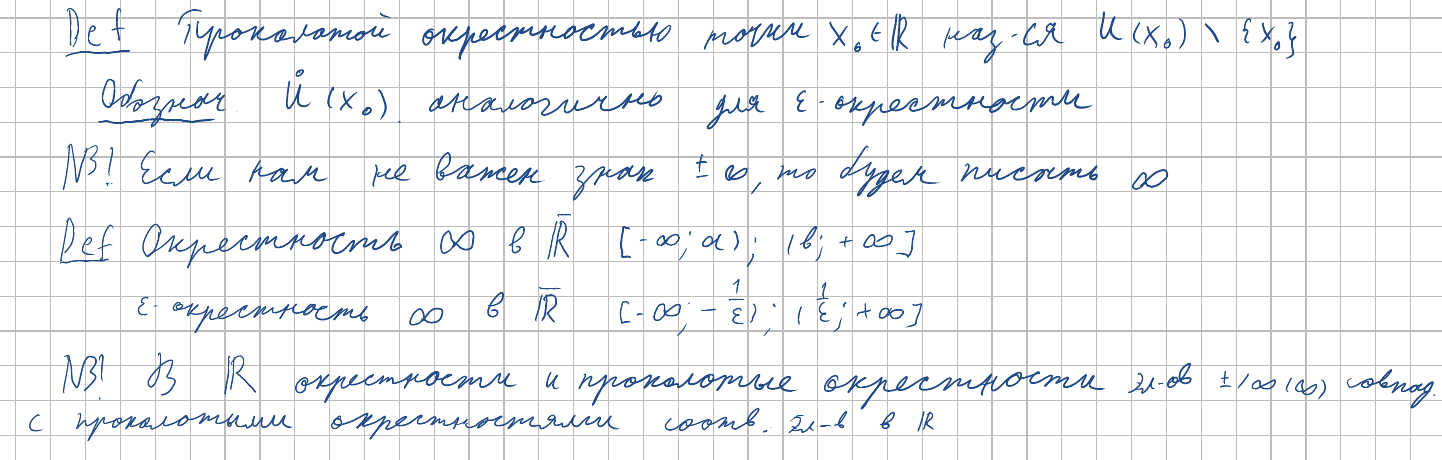 Def Проколотой окрестностью точки x₀ ∈ ℝ наз-ся U(x₀) \ {x₀}
Обознач. Ů(x₀). аналогично для ε-окрестности
NB! Если нам не важен знак ±∞, то будем писать ∞
Def Окрестность ∞ в ℝ̅ [-∞; a); (b; +∞]
ε-окрестность ∞ в ℝ̅ [-∞; -1/ε); (1/ε; +∞]
NB! В ℝ окрестности и проколотые окрестности эл-ов ±∞ (∞) совпад.
с проколотыми окрестностями соотв. эл-в в ℝ